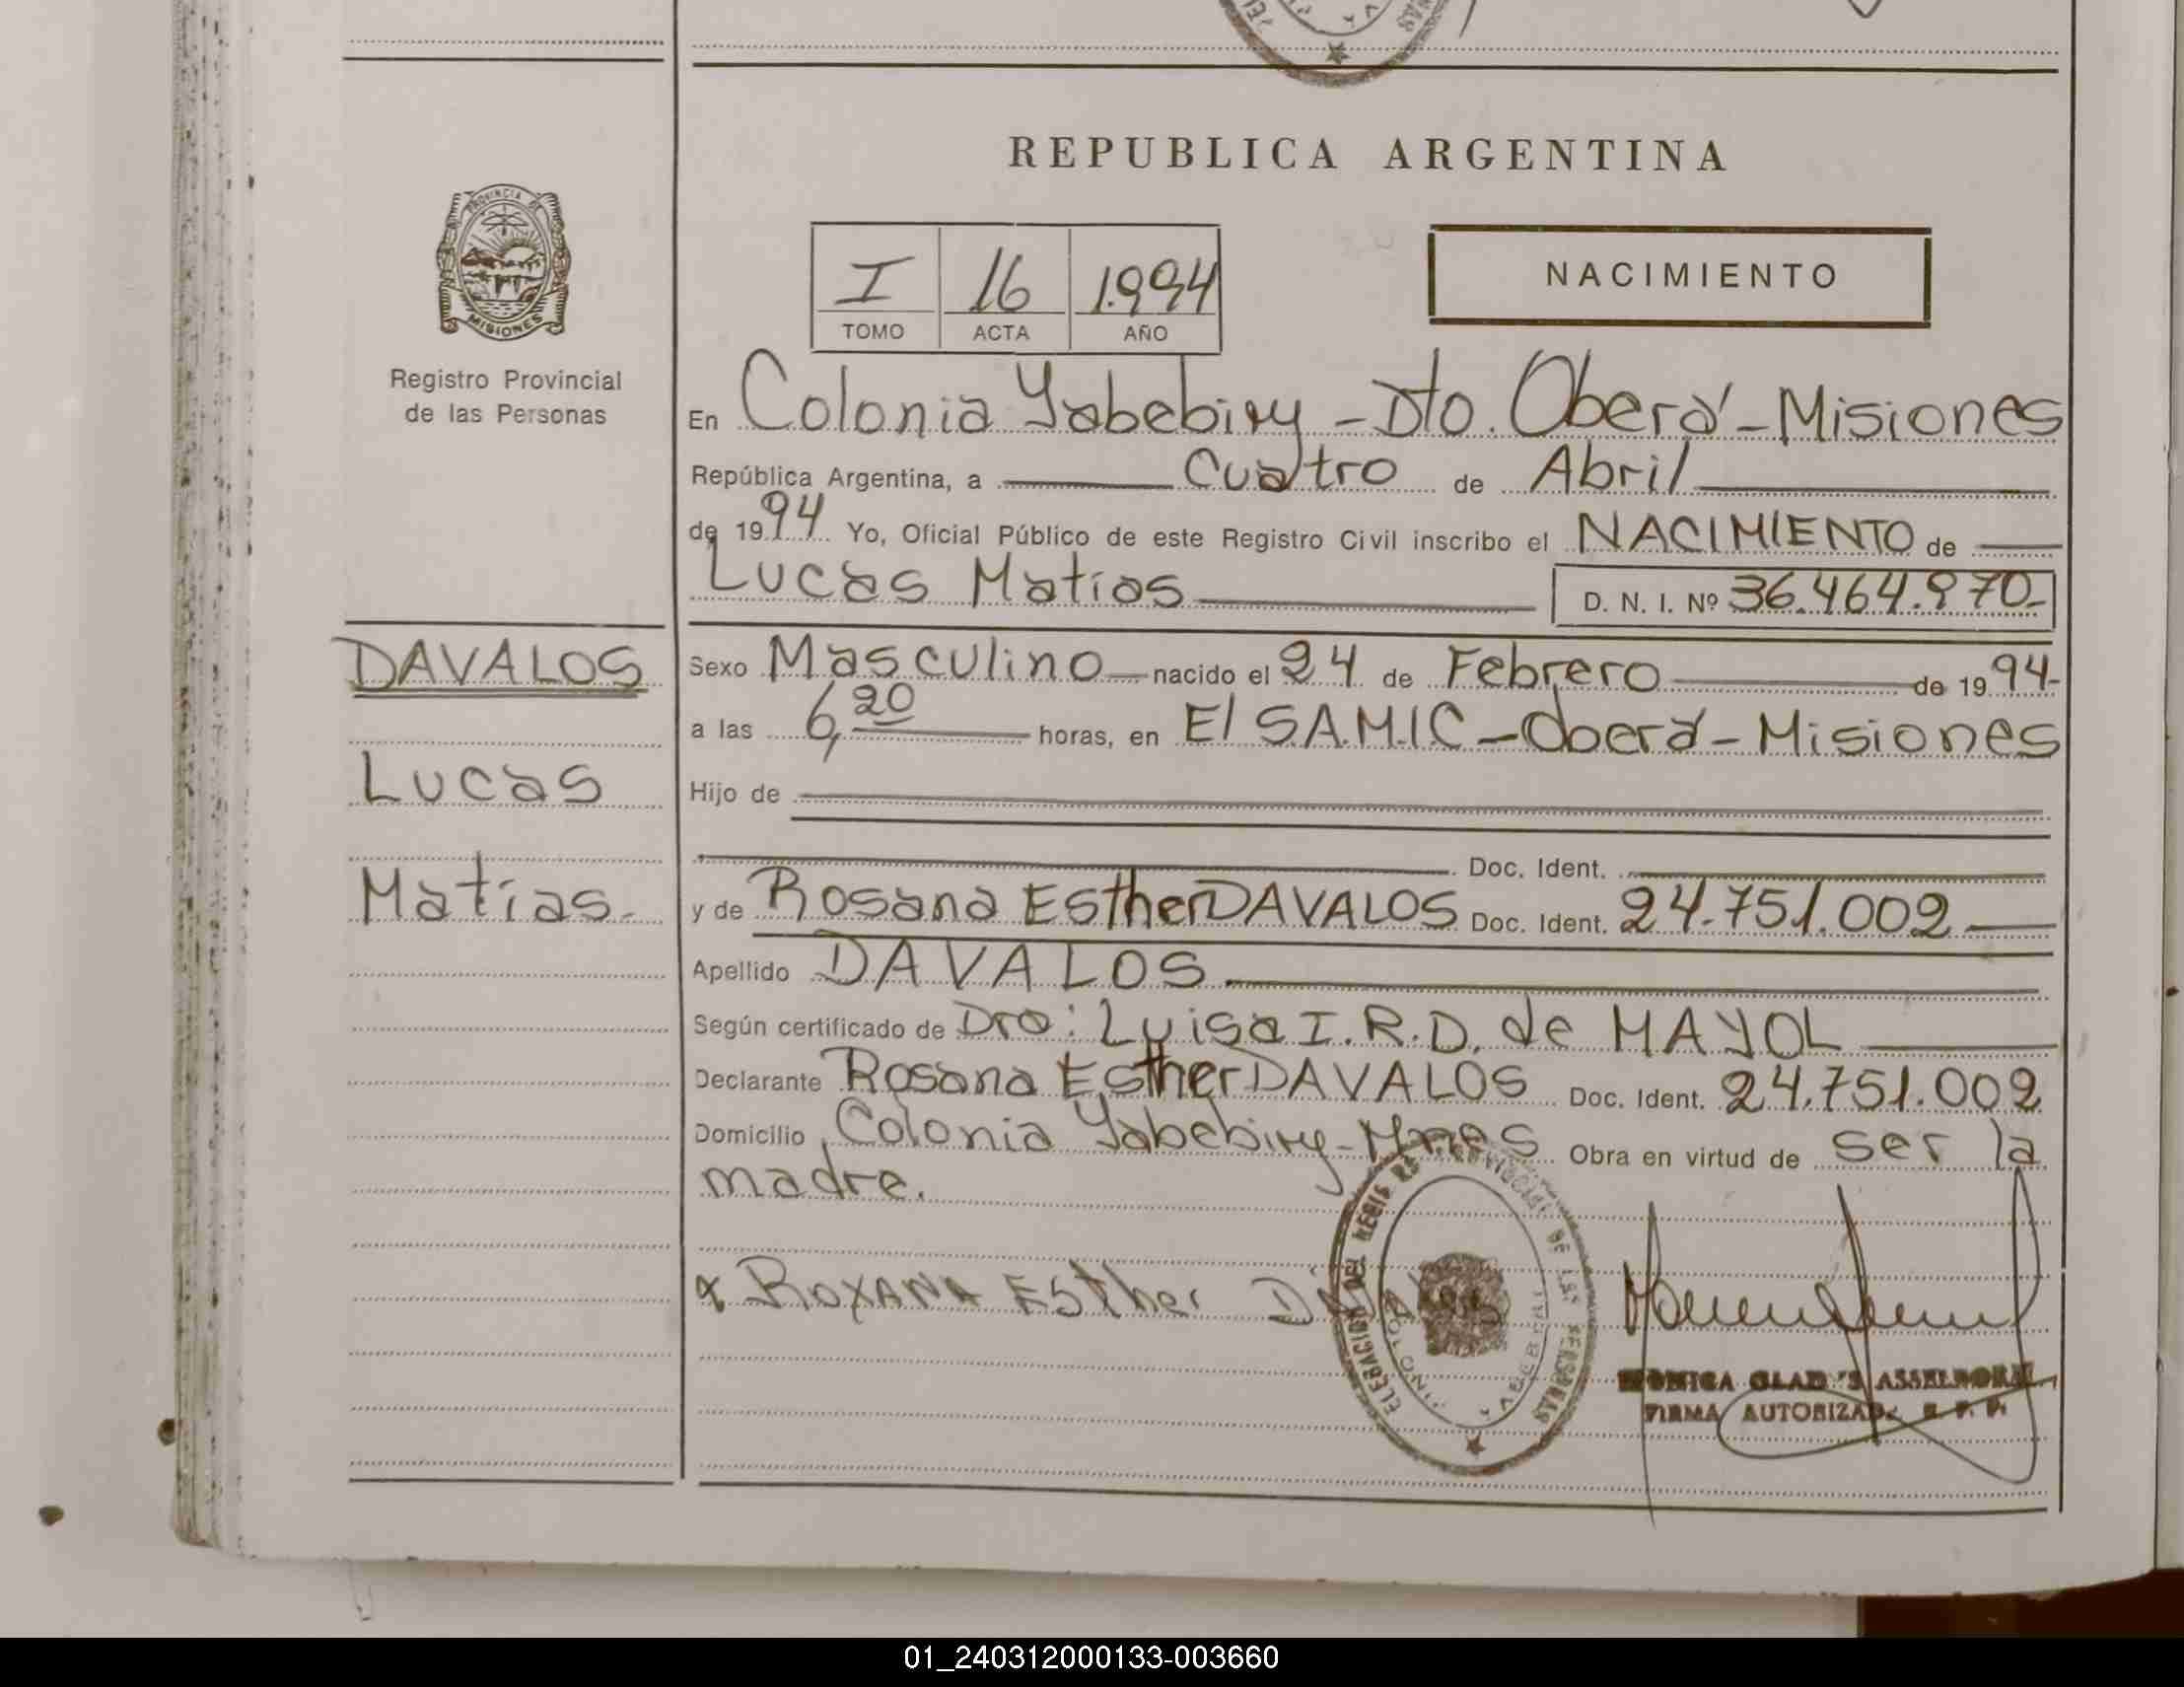 REPUBLICA ARGENTINA
PROVINCIA DE
MISIONES
Registro Provincial
de las Personas
I 16 1.994
TOMO ACTA AÑO
NACIMIENTO
En Colonia Yabebiry - Dto. Oberá - Misiones
República Argentina, a Cuatro de Abril
de 1994 Yo, Oficial Público de este Registro Civil inscribo el NACIMIENTO de
Lucas Matias D. N. I. Nº 36.464.970-
DAVALOS
Lucas
Matías.-
Sexo Masculino nacido el 24 de Febrero de 1994-
a las 6,20 horas, en El S.A.M.I.C - Oberá - Misiones
Hijo de
Doc. Ident.
y de Rosana Esther DAVALOS Doc. Ident. 24.751.002
Apellido DAVALOS
Según certificado de Dra: Luisa I. R. D. de MAYOL
Declarante Rosana Esther DAVALOS Doc. Ident. 24.751.002
Domicilio Colonia Yabebiry - Mnes Obra en virtud de ser la
madre.
ROXANA Esther
MONICA GLADYS ASSELBORN
FIRMA AUTORIZADA R. P. P.
01_240312000133-003660